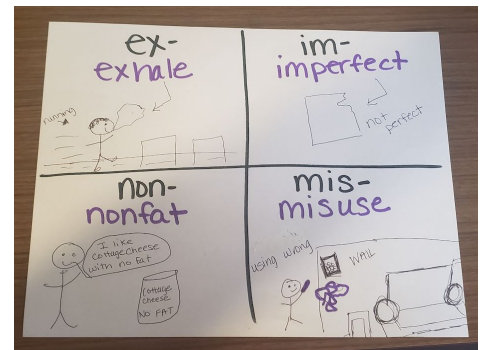 ex-
exhale
running
im-
imperfect
not
perfect
non-
nonfat
I like
cottage cheese
with no fat
cottage
cheese
NO FAT
mis-
misuse
using wrong
WALL